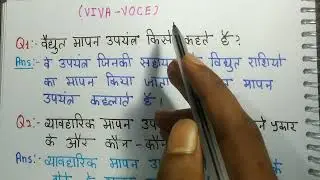 (VIVA-VOCE)
Q1: वैद्युत मापन उपयंत्र किसे कहते हैं?
Ans: वे उपयंत्र जिनकी विद्युत राशियों
का मापन किया जाता मापन
उपयंत्र कहलाते हैं।
Q2: व्यावहारिक मापन प्रकार
के और कौन-कौन
Ans: व्यावहारिक मापन